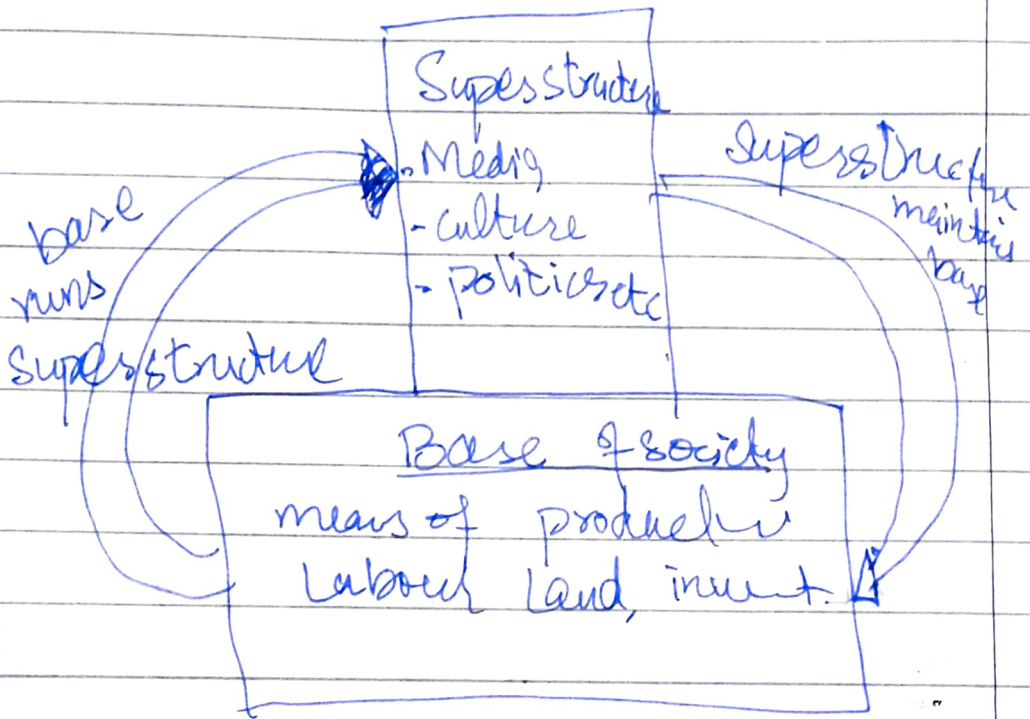 Superstructure
- Media,
- culture
- politics etc
base
runs
superstructure
superstructure
maintains
base
Base of society
means of production
Labour Land, invest.